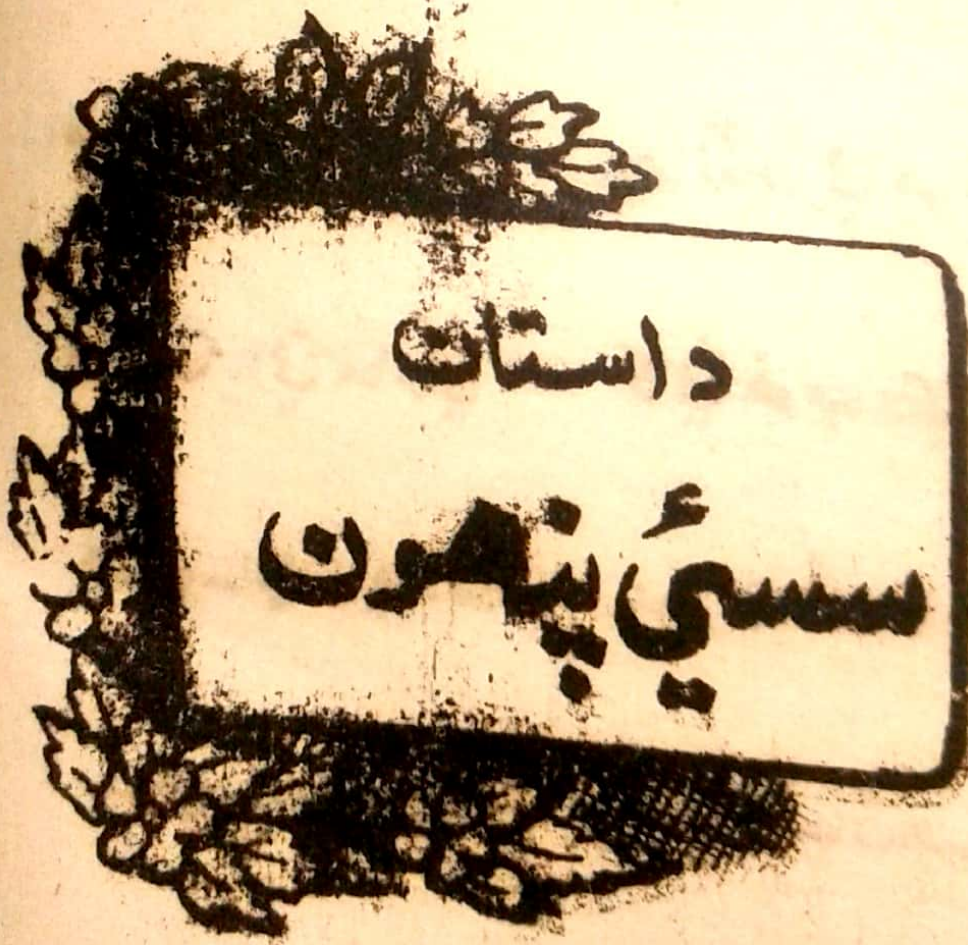 داستان
سسئي پنھون